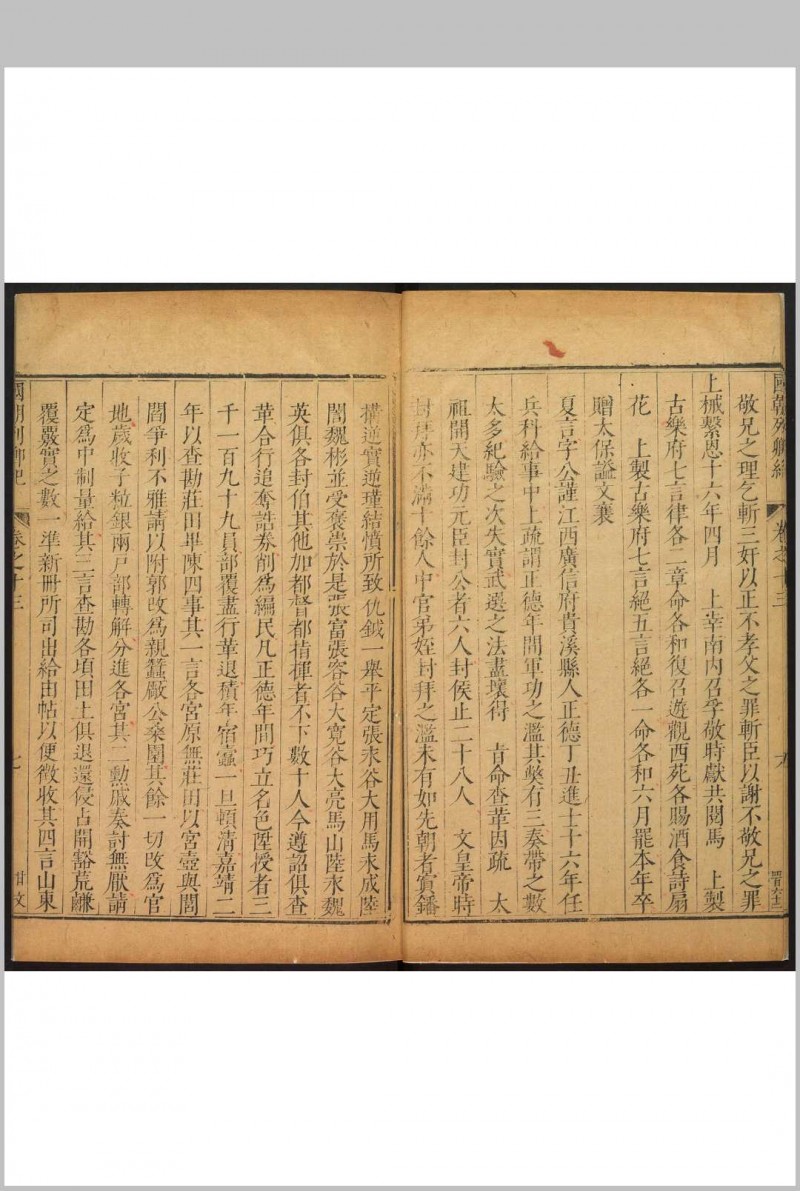 國朝列卿紀 卷之十三
敬兄之理乞斬三奸以正不孝父之罪斬臣以謝不敬兄之罪
上械繫恩十六年四月 上幸南內召孚敬時獻共閱馬 上製
古樂府七言律各二章命各和復召遊觀西苑各賜酒食詩扇
花 上製古樂府七言絕五言絕各一命各和六月罷本年卒
贈太保諡文襄
夏言字公謹江西廣信府貴溪縣人正德丁丑進士十六年任
兵科給事中上疏謂正德年間軍功之濫其獘有三奏帶之數
太多紀驗之次失實武選之法盡壞得 旨命查革因疏 太
祖開天建功元臣封公者六人封侯止二十八人 文皇帝時
封拜亦不滿十餘人中官弟姪封拜之濫未有如先朝者寘鐇
搆逆實逆瑾結憤所致仇鉞一舉平定張永谷大用馬永成陸
誾魏彬並受褒崇於是張富張容谷大寬谷大亮馬山陸永魏
英俱各封伯其他加都督都指揮者不下數十人今遵詔俱查
革合行追奪誥券削爲編民凡正德年間巧立名色陞授者三
千一百九十九員部覆盡行革退積年宿蠹一旦頓清嘉靖二
年以查勘莊田畢陳四事其一言各宮原無莊田以宮壼與閭
閻爭利不雅請以附郭改爲親蠶厰公桑園其餘一切改爲官
地歲收子粒銀兩戶部轉解分進各宮其二勲戚奏討無厭請
定爲中制量給其三言查勘各項田土俱退還侵占開豁荒鹻
覆覈實之數一準新冊所司出給由帖以便徵收其四言山東
國朝列卿紀 卷之十三 七